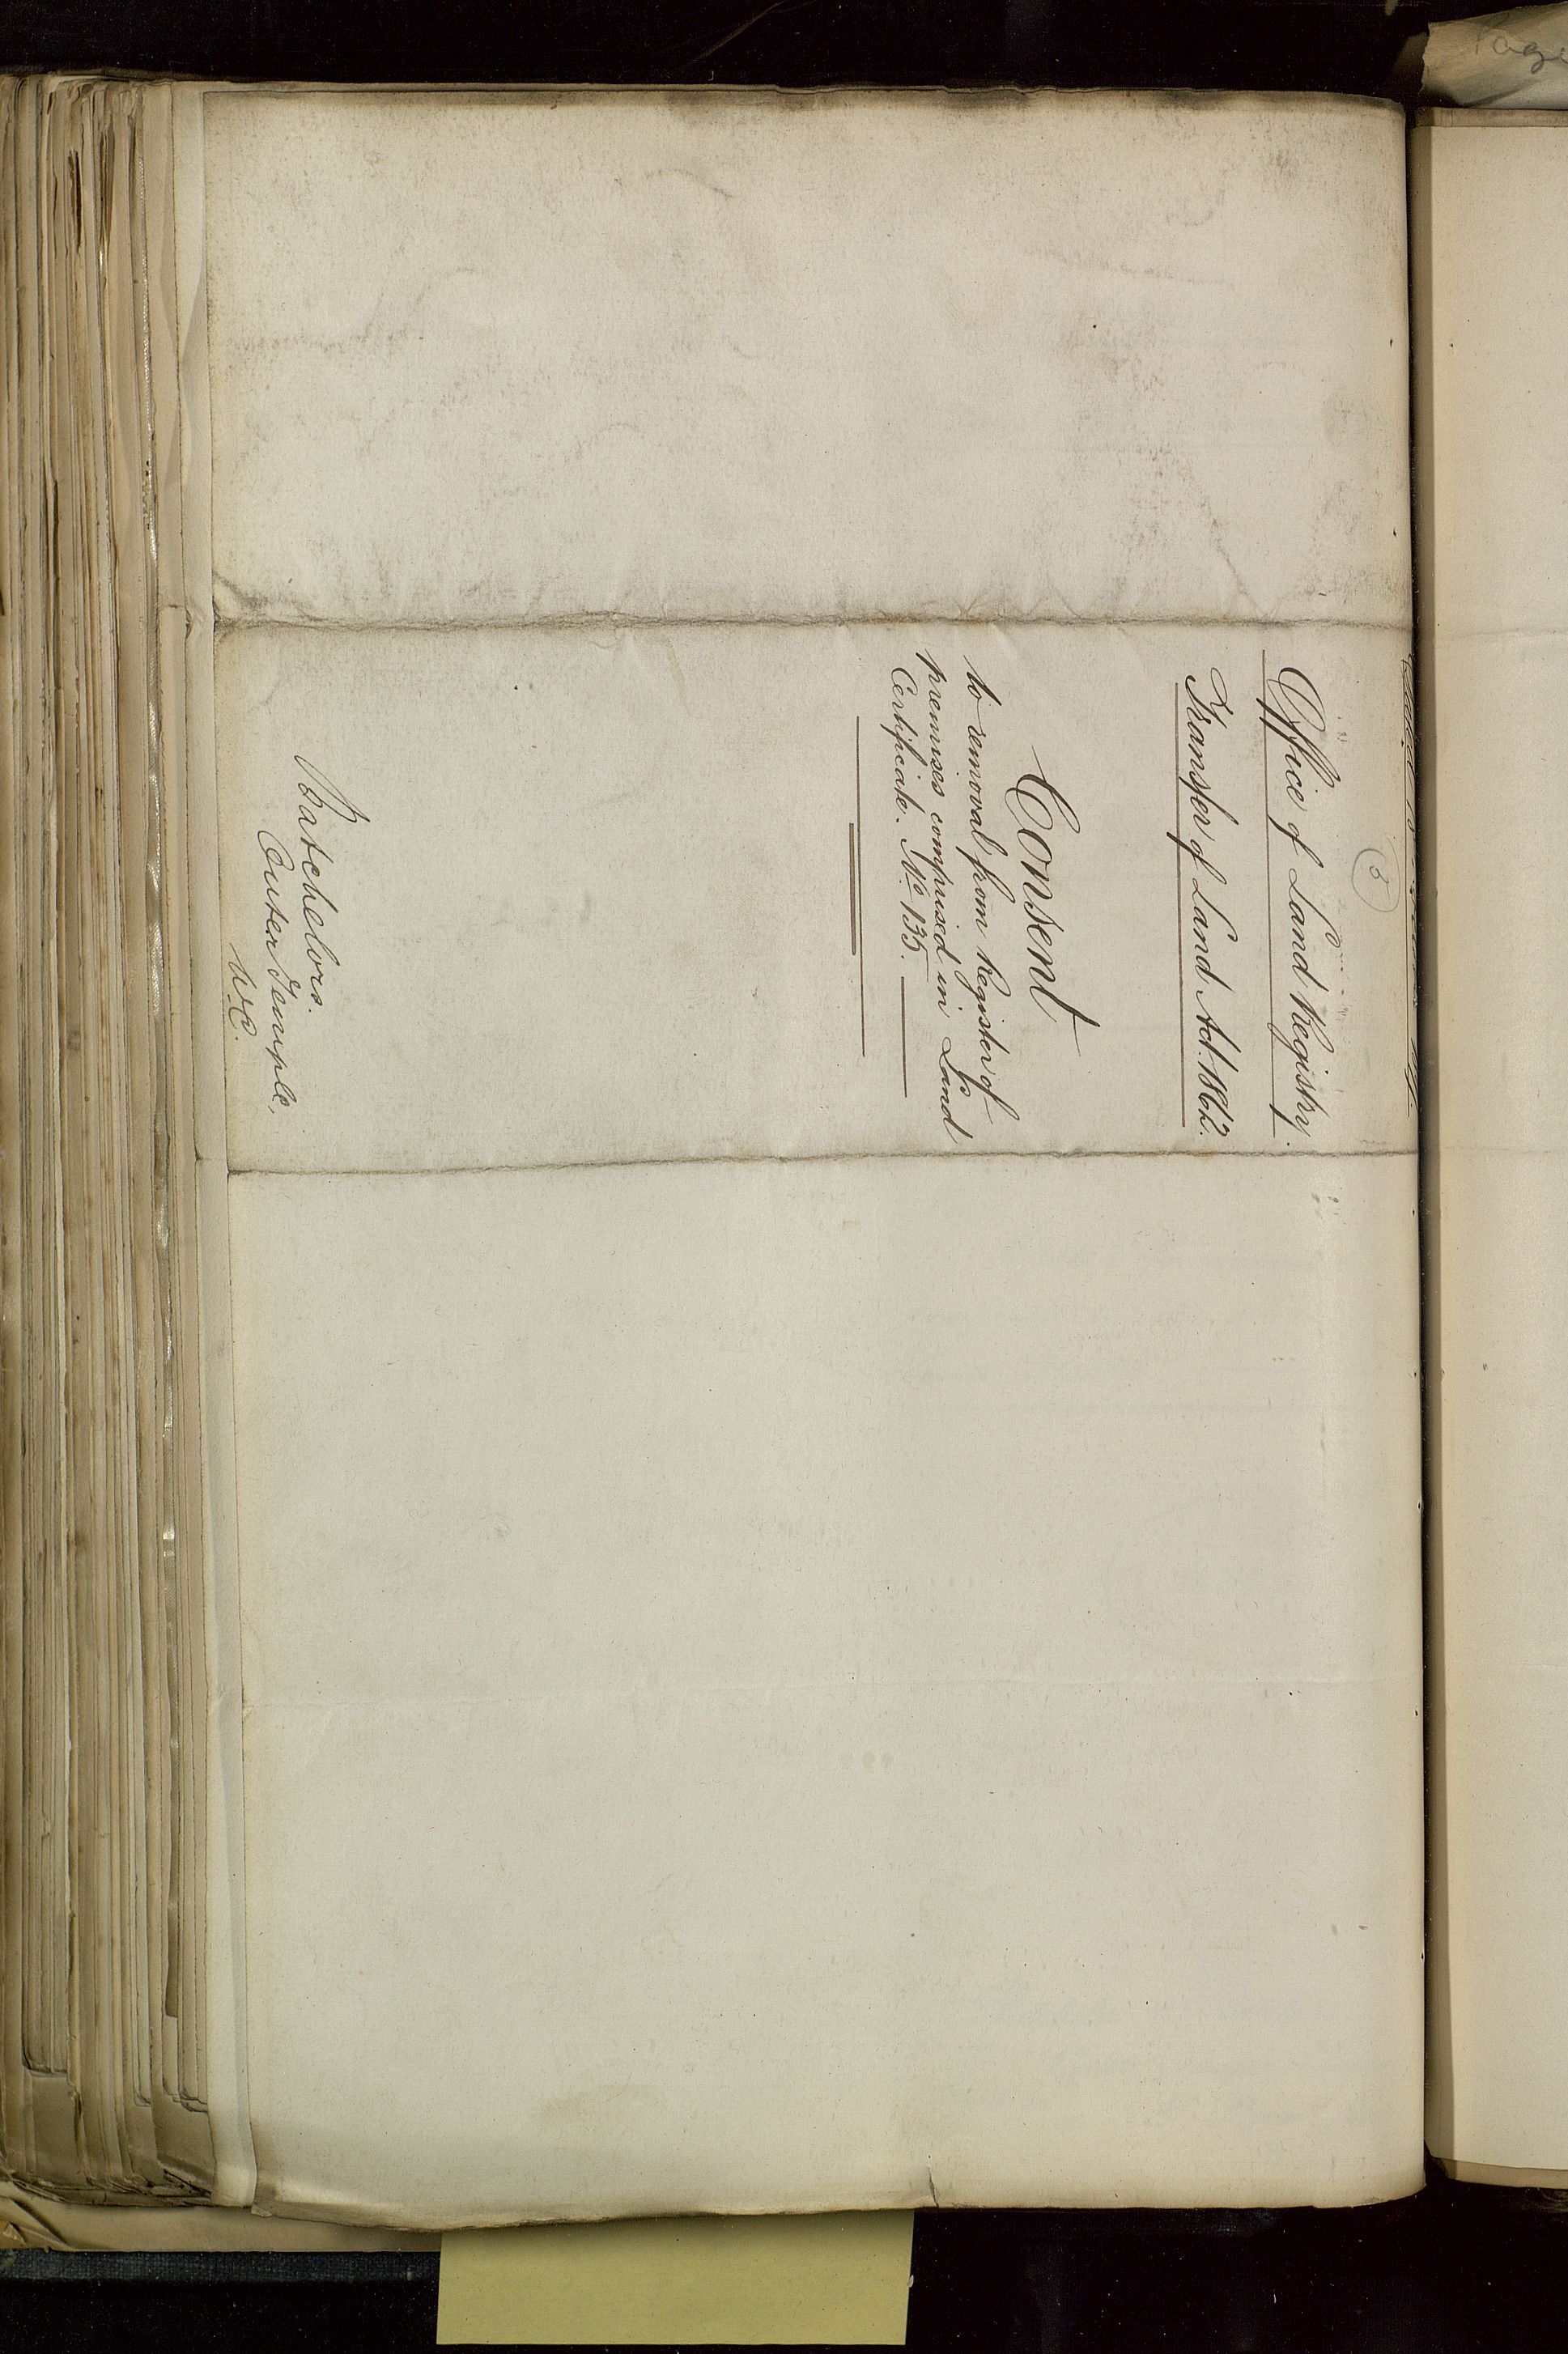 3
Office of Land Registry.
Transfer of Land Act. 1862.
Consent
to removal from Register of
premises comprised in Land
Certificate. No. 135.
Batchelors.
Outer Temple,
W.C.
Page